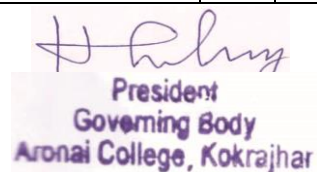 President
Governing Body
Aronai College, Kokrajhar